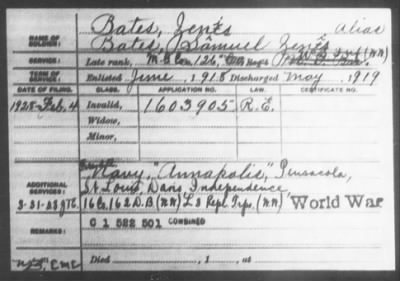 Bates, Zenes Alias
NAME OF SOLDIER: Bates, Samuel Zenes
SERVICE: Late rank, M. G. Co., 126" Reg't
TERM OF SERVICE: Enlisted June, 1918 Discharged May, 1919
DATE OF FILING. CLASS. APPLICATION NO. LAW. CERTIFICATE NO.
1928-Feb. 4 Invalid, 1603905 R.E.
Widow,
Minor,
ADDITIONAL SERVICES: Navy, "Annapolis", Pensacola,
St Louis, Dans, Independence
3-31-28 16 Co, 162 D.B (NA) L 3 Repl. Trps. (NA) World War
REMARKS: C 1 522 501 COMBINED
Died, 1, at